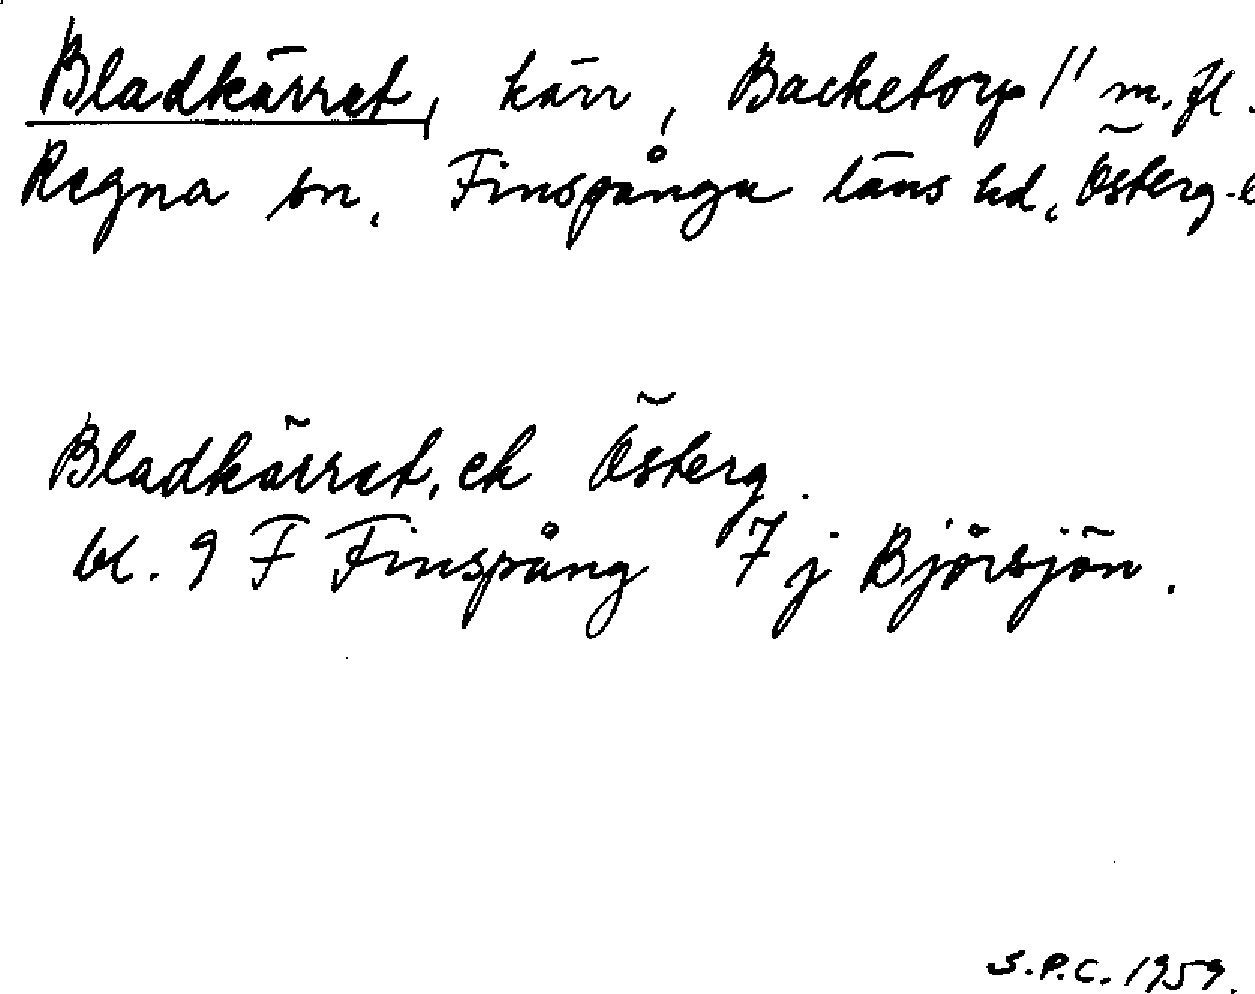 Bladkärret, kärr, Backetorp 1/1 m.fl.
Regna sn, Finspånga läns hd, Österg.
Bladkärret, ek Österg.
bl. 9 F Finspång 7 j Björsjön.
S.P.C. 1959.